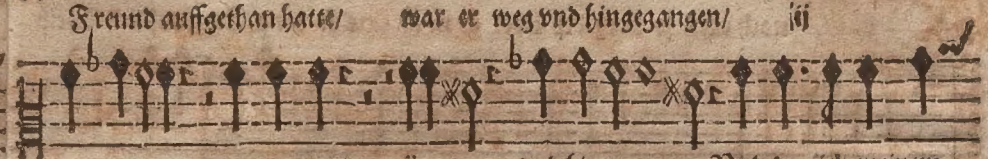 Freund auffgethan hatte/ war er weg vnd hingegangen/ iij